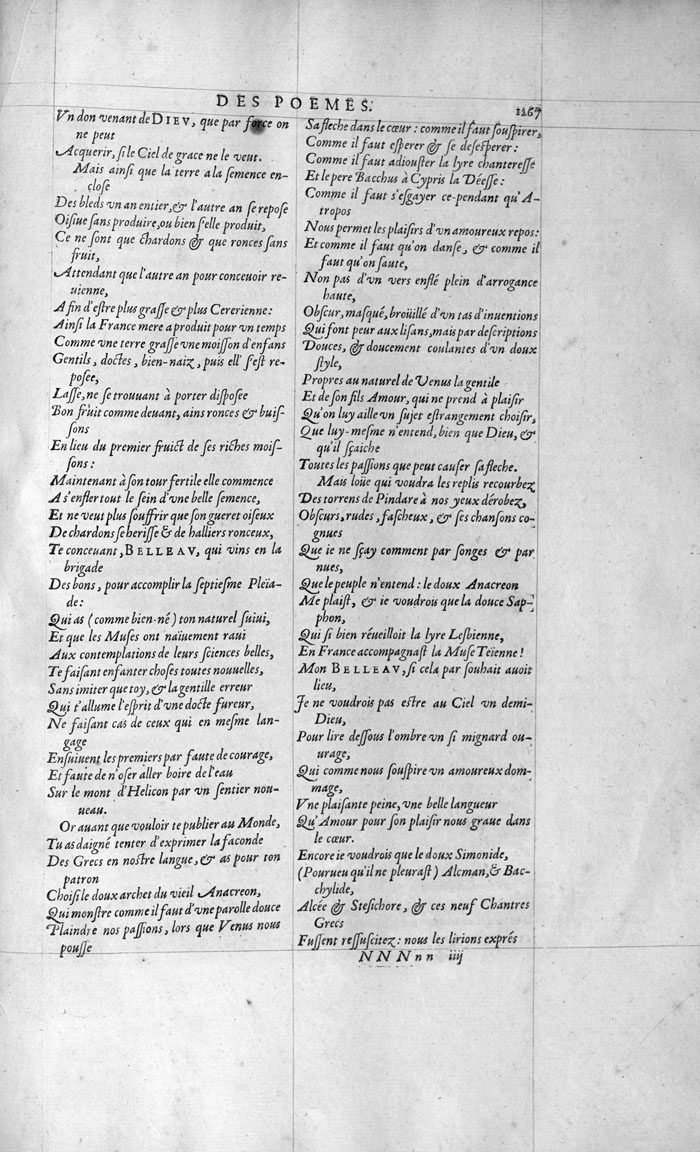 DES POEMES.
1267
Vn don venant de DIEV, que par force on
ne peut
Acquerir, si le Ciel de grace ne le veut.
Mais ainsi que la terre a la semence en-
close
Des bleds vn an entier, & l'autre an se repose
Oisiue sans produire, ou bien s'elle produit,
Ce ne sont que chardons & que ronces sans
fruit,
Attendant que l'autre an pour conceuoir re-
uienne,
Afin d'estre plus grasse & plus Cererienne:
Ainsi la France mere a produit pour vn temps
Comme vne terre grasse vne moisson d'enfans
Gentils, doctes, bien-naiz, puis ell' s'est re-
posee,
Lasse, ne se trouuant à porter disposee
Bon fruit comme deuant, ains ronces & buis-
sons
En lieu du premier fruict de ses riches mois-
sons:
Maintenant à son tour fertile elle commence
A s'enfler tout le sein d'vne belle semence,
Et ne veut plus souffrir que son gueret oiseux
De chardons se herisse & de halliers ronceux,
Te conceuant, BELLEAV, qui vins en la
brigade
Des bons, pour accomplir la septiesme Pleïa-
de:
Qui as (comme bien-né) ton naturel suiui,
Et que les Muses ont naïuement raui
Aux contemplations de leurs sciences belles,
Te faisant enfanter choses toutes nouuelles,
Sans imiter que toy, & la gentille erreur
Qui t'allume l'esprit d'vne docte fureur,
Ne faisant cas de ceux qui en mesme lan-
gage
Ensuiuent les premiers par faute de courage,
Et faute de n'oser aller boire de l'eau
Sur le mont d'Helicon par vn sentier nou-
ueau.
Or auant que vouloir te publier au Monde,
Tu as daigné tenter d'exprimer la faconde
Des Grecs en nostre langue, & as pour ton
patron
Choisi le doux archet du vieil Anacreon,
Qui monstre comme il faut d'vne parolle douce
Plaindre nos passions, lors que Venus nous
pousse
Sa fleche dans le cœur: comme il faut souspirer,
Comme il faut esperer & se desesperer:
Comme il faut adiouster la lyre chanteresse
Et le pere Bacchus à Cypris la Déesse:
Comme il faut s'esgayer ce-pendant qu'A-
tropos
Nous permet les plaisirs d'vn amoureux repos:
Et comme il faut qu'on danse, & comme il
faut qu'on saute,
Non pas d'vn vers enflé plein d'arrogance
haute,
Obscur, masqué, broüillé d'vn tas d'inuentions
Qui font peur aux lisans, mais par descriptions
Douces, & doucement coulantes d'vn doux
style,
Propres au naturel de Venus la gentile
Et de son fils Amour, qui ne prend à plaisir
Qu'on luy aille vn sujet estrangement choisir,
Que luy-mesme n'entend, bien que Dieu, &
qu'il sçaiche
Toutes les passions que peut causer sa fleche.
Mais loüe qui voudra les replis recourbez
Des torrens de Pindare à nos yeux dérobez,
Obscurs, rudes, fascheux, & ses chansons co-
gnues
Que ie ne sçay comment par songes & par
nues,
Que le peuple n'entend: le doux Anacreon
Me plaist, & ie voudrois que la douce Sap-
phon,
Qui si bien réueilloit la lyre Lesbienne,
En France accompagnast la Muse Teïenne!
Mon BELLEAV, si cela par souhait auoit
lieu,
Je ne voudrois pas estre au Ciel vn demi-
Dieu,
Pour lire dessous l'ombre vn si mignard ou-
urage,
Qui comme nous souspire vn amoureux dom-
mage,
Vne plaisante peine, vne belle langueur
Qu'Amour pour son plaisir nous graue dans
le cœur.
Encore ie voudrois que le doux Simonide,
(Pourueu qu'il ne pleurast) Alcman, & Bac-
chylide,
Alcée & Stesichore, & ces neuf Chantres
Grecs
Fussent ressuscitez: nous les lirions exprés
NNNnn iiij